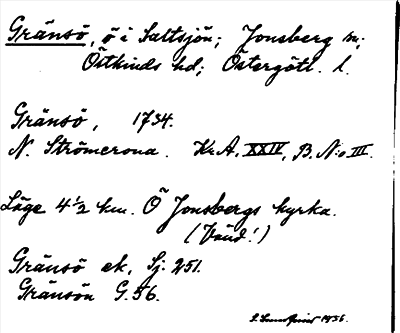 Gränsö, ö i Saltsjön; Jonsberg sn;
Östkinds hd; Östergötl. l.
Gränsö, 1734.
N. Strömcrona. K.A. XXIV, B. N:o III.
Läge 4½ km. Ö Jonsbergs kyrka.
(Vänd!)
Gränsö ek, Sj: 251.
Gränsön G. 56.
1936.